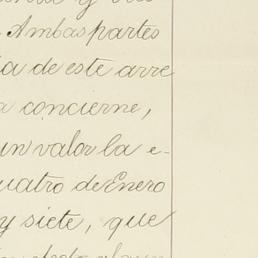 y
Ambas partes
ia de este arre
a concierne,
un valor la e-
uatro de Enero
y siete, que